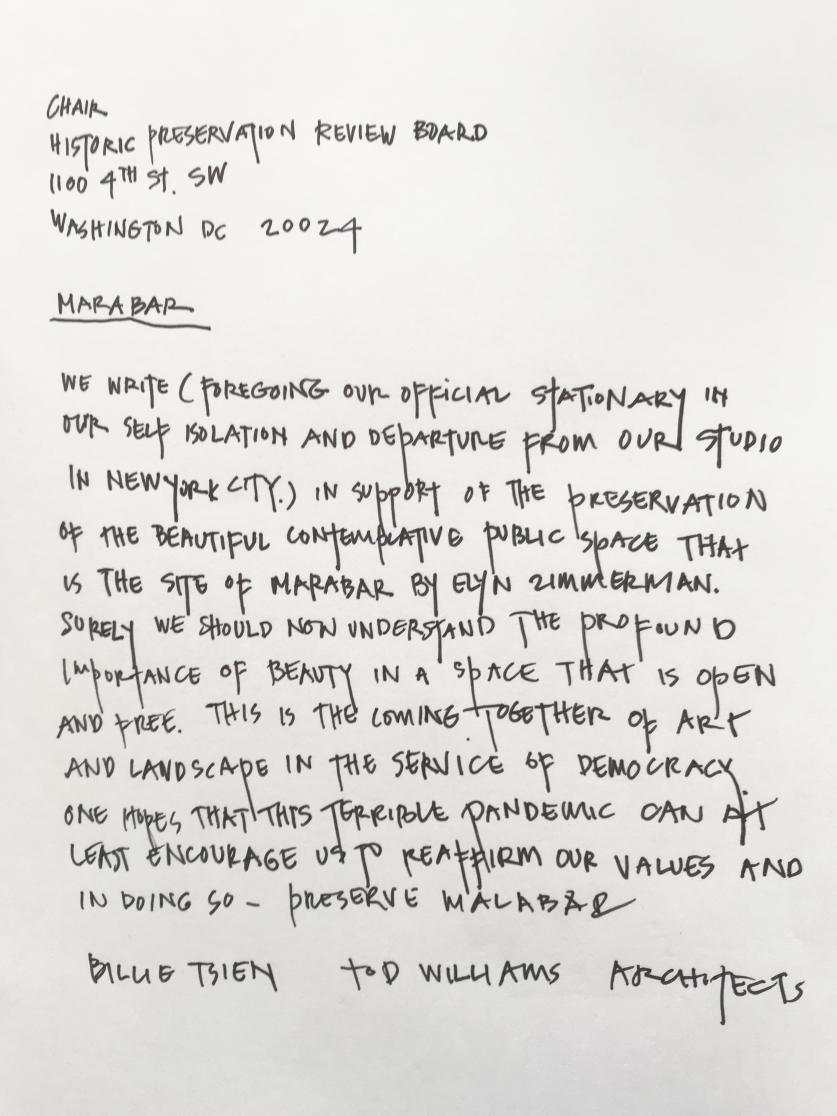 CHAIR
HISTORIC PRESERVATION REVIEW BOARD
1100 4TH ST. SW
WASHINGTON DC 20024
MARABAR
WE WRITE (FOREGOING OUR OFFICIAL STATIONARY IN
OUR SELF ISOLATION AND DEPARTURE FROM OUR STUDIO
IN NEW YORK CITY.) IN SUPPORT OF THE PRESERVATION
OF THE BEAUTIFUL CONTEMPLATIVE PUBLIC SPACE THAT
IS THE SITE OF MARABAR BY ELYN ZIMMERMAN.
SURELY WE SHOULD NOW UNDERSTAND THE PROFOUND
IMPORTANCE OF BEAUTY IN A SPACE THAT IS OPEN
AND FREE. THIS IS THE COMING TOGETHER OF ART
AND LANDSCAPE IN THE SERVICE OF DEMOCRACY.
ONE HOPES THAT THIS TERRIBLE PANDEMIC CAN AT
LEAST ENCOURAGE US TO REAFFIRM OUR VALUES AND
IN DOING SO - PRESERVE MALABAR
BILLIE TSIEN TOD WILLIAMS ARCHITECTS